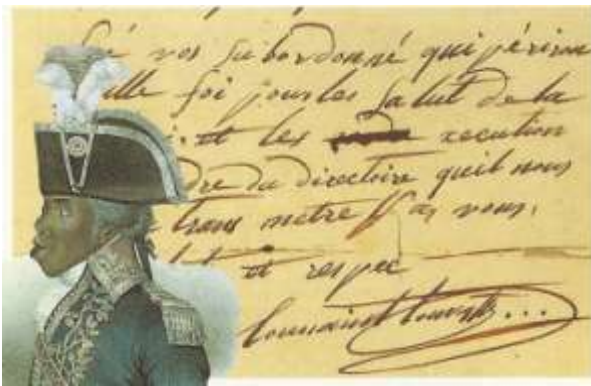 vos subordonné qui périron
mille foi pour les salut de la
et les xecution
dre du directoire quil nous
trans metre par vous.
salut et respec
Toussaint Louverture